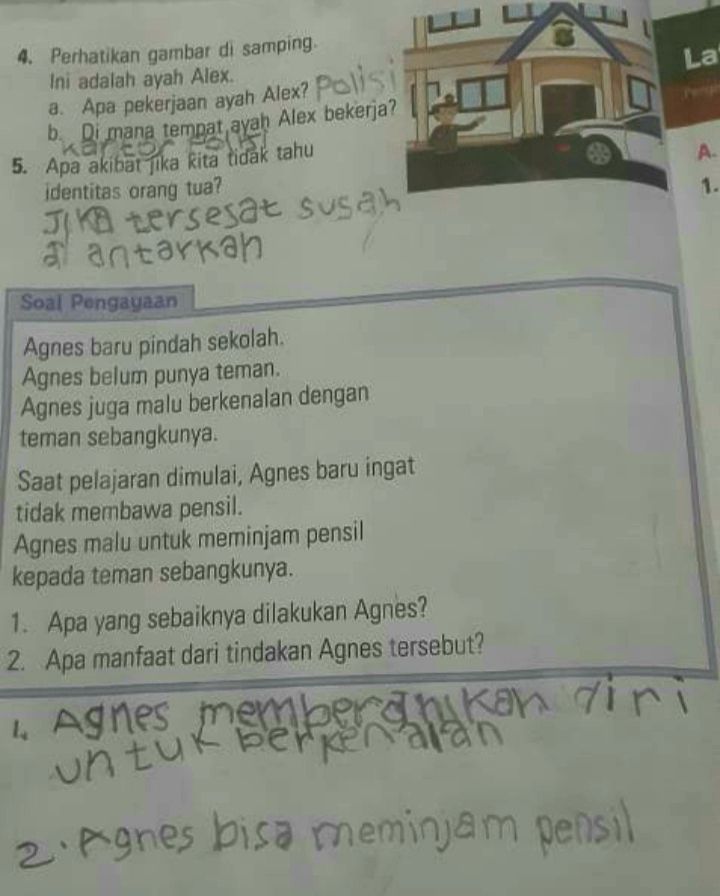 4. Perhatikan gambar di samping.
Ini adalah ayah Alex.
a. Apa pekerjaan ayah Alex? Polisi
b. Di mana tempat ayah Alex bekerja?
Kantor Polisi
5. Apa akibat jika kita tidak tahu
identitas orang tua?
Jika tersesat susah
di antarkan
Soal Pengayaan
Agnes baru pindah sekolah.
Agnes belum punya teman.
Agnes juga malu berkenalan dengan
teman sebangkunya.
Saat pelajaran dimulai, Agnes baru ingat
tidak membawa pensil.
Agnes malu untuk meminjam pensil
kepada teman sebangkunya.
1. Apa yang sebaiknya dilakukan Agnes?
2. Apa manfaat dari tindakan Agnes tersebut?
1. Agnes memberanikan diri
untuk berkenalan
2. Agnes bisa meminjam pensil
La
A.
1.